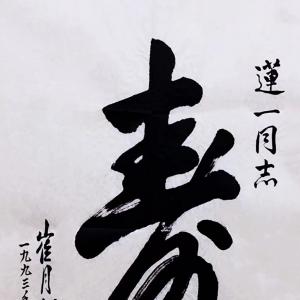 蓮一同志
壽
崔月
一九九三